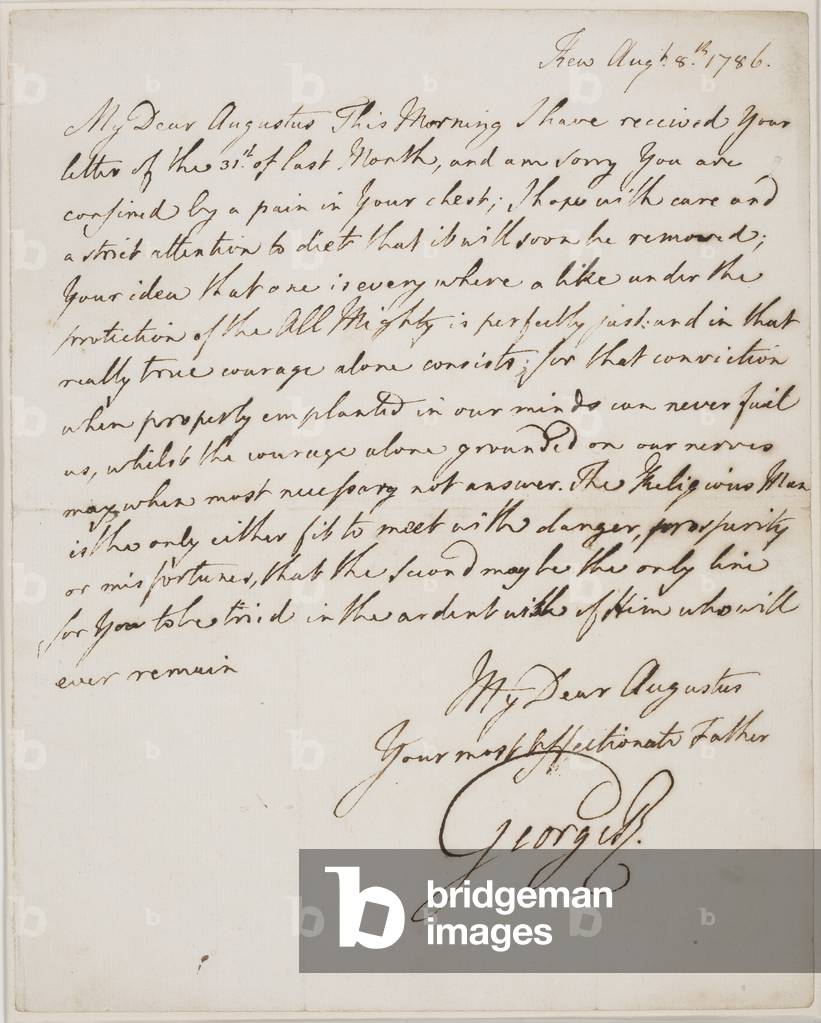 Kew Augt. 8.th 1786.
My Dear Augustus This Morning I have received Your
letter of the 31st. of last Month, and am sorry You are
confined by a pain in Your chest; I hope with care and
a strict attention to diet that it will soon be removed;
Your idea that one is every where a like under the
protection of the All Mighty is perfectly just: and in that
really true courage alone consists; for that conviction
when properly emplanted in our minds can never fail
us, whilst the courage alone grounded on our nerves
may when most necessary not answer. The Religious Man
is the only either fit to meet with danger, prosperity
or misfortunes, that the second may be the only line
for You to be tried in the ardent wish of Him who will
ever remain
My Dear Augustus
Your most Affectionate Father
George R.
bridgeman
images